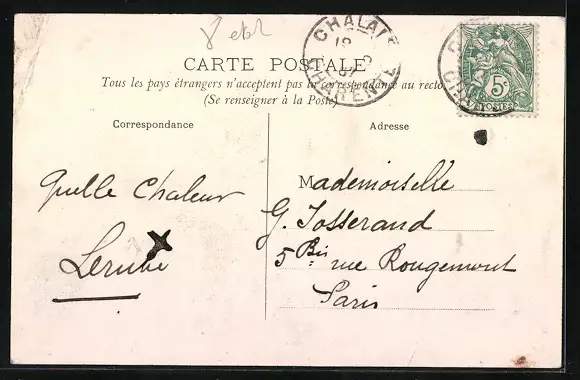 CHALAIS
CHARENTE
CARTE POSTALE
5c
POSTES
Tous les pays étrangers n'acceptent pas la correspondance au recto
(Se renseigner à la Poste)
Correspondance
Adresse
Quelle Chaleur
Mademoiselle
G. Josserand
5 Bis rue Rougemont
Paris